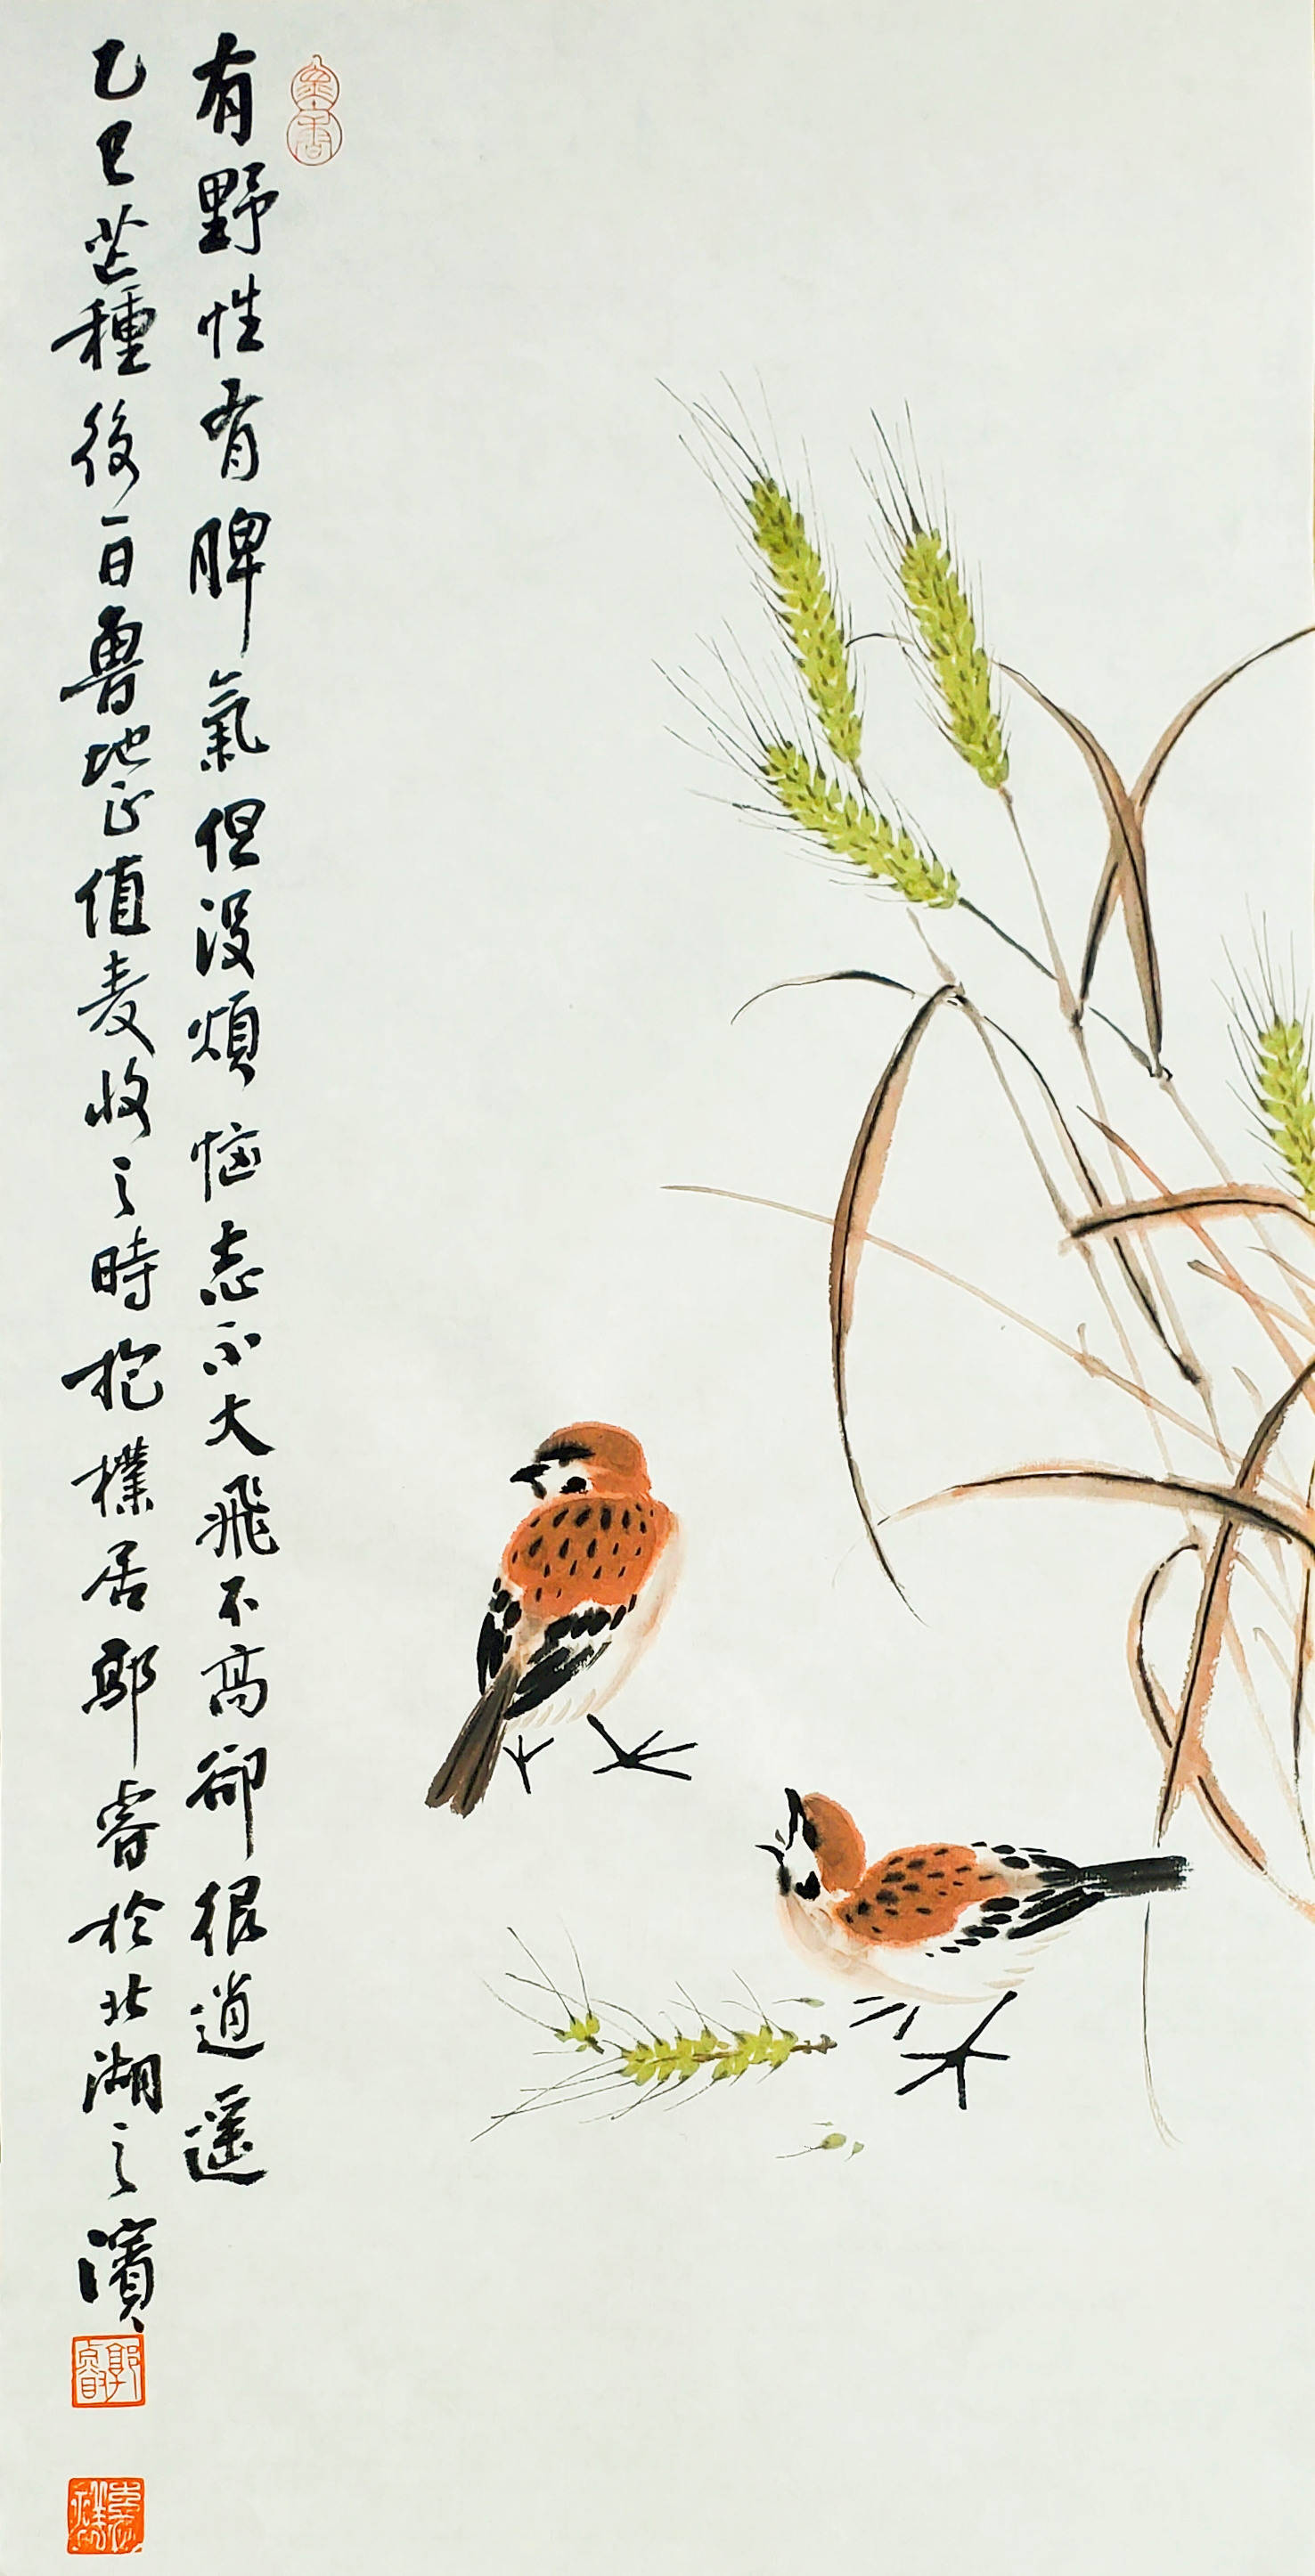 有野性有脾氣但没煩惱志不大飛不高卻很逍遥
乙巳芒種後一日魯地正值麦收之時抱樸居郭睿於北湖之濱
郭睿